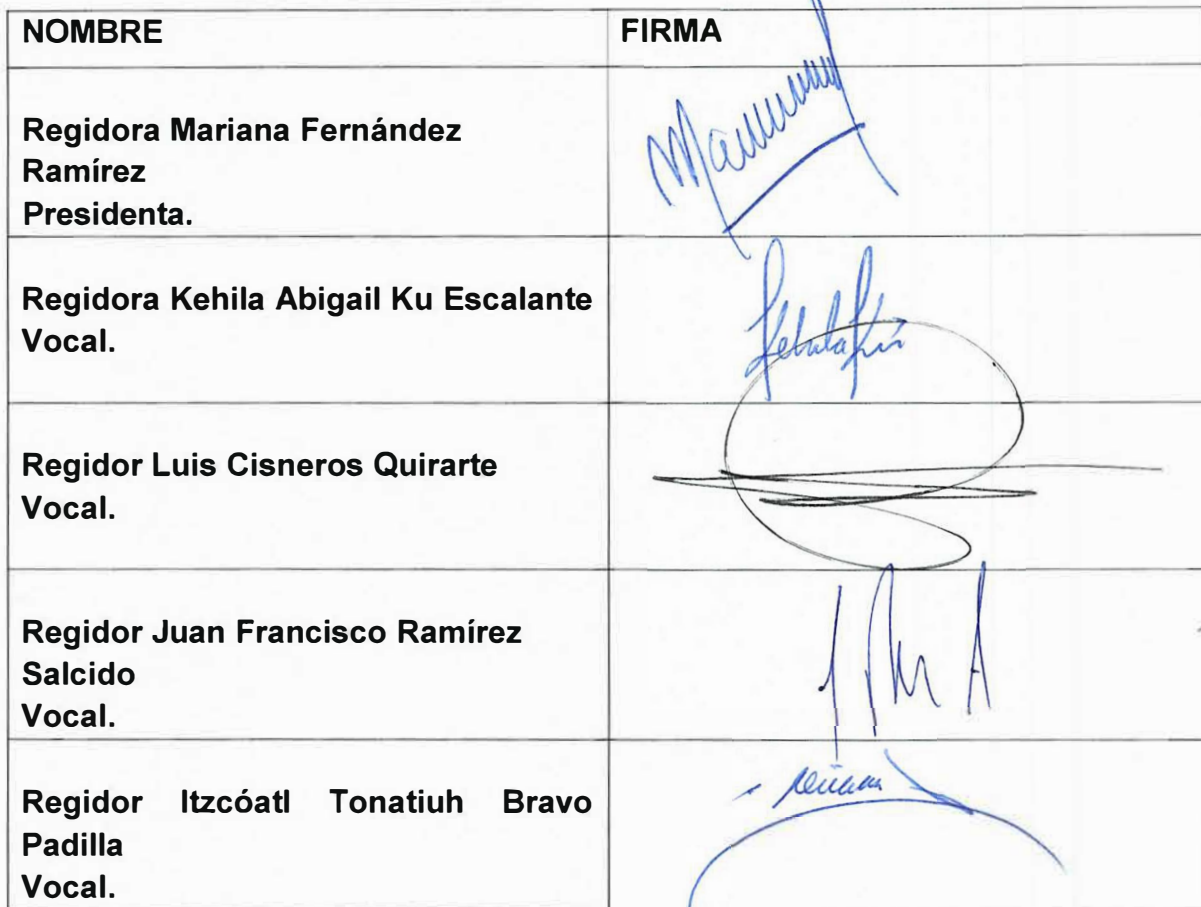 NOMBRE
FIRMA
Regidora Mariana Fernández
Ramírez
Presidenta.
Regidora Kehila Abigail Ku Escalante
Vocal.
Regidor Luis Cisneros Quirarte
Vocal.
Regidor Juan Francisco Ramírez
Salcido
Vocal.
Regidor Itzcóatl Tonatiuh Bravo
Padilla
Vocal.